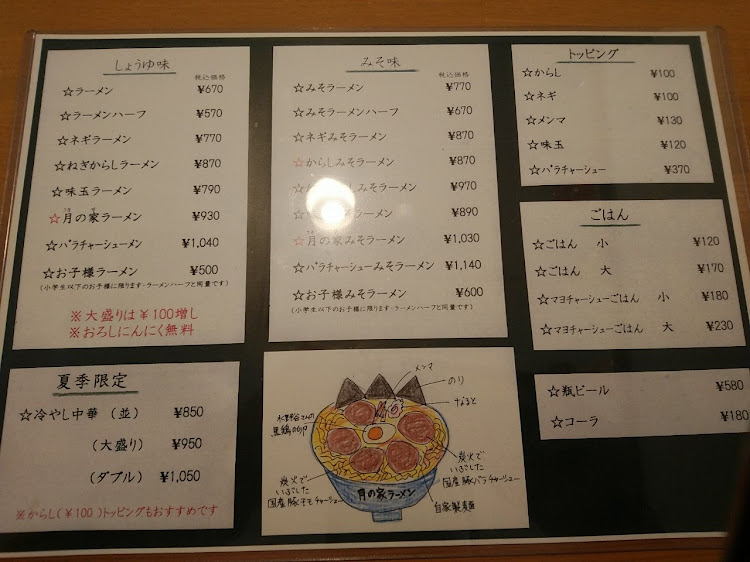 しょうゆ味
税込価格
☆ラーメン ¥670
☆ラーメンハーフ ¥570
☆ネギラーメン ¥770
☆ねぎからしラーメン ¥870
☆味玉ラーメン ¥790
☆月の家ラーメン ¥930
☆バラチャーシューメン ¥1,040
☆お子様ラーメン ¥500
(小学生以下のお子様に限ります・ラーメンハーフと同量です)
※大盛りは¥100増し
※おろしにんにく無料
夏季限定
☆冷やし中華 (並) ¥850
(大盛り) ¥950
(ダブル) ¥1,050
※からし(¥100)トッピングもおすすめです
みそ味
税込価格
☆みそラーメン ¥770
☆みそラーメンハーフ ¥670
☆ネギみそラーメン ¥870
☆からしみそラーメン ¥870
しみそラーメン ¥970
ラーメン ¥890
☆月の家みそラーメン ¥1,030
☆バラチャーシューみそラーメン ¥1,140
☆お子様みそラーメン ¥600
(小学生以下のお子様に限ります・ラーメンハーフと同量です)
メンマ
のり
なると
さんの
黒鶏の卵
炭火で
いぶした
国産豚モモチャーシュー
炭火で
いぶした
国産豚バラチャーシュー
月の家ラーメン
自家製麺
トッピング
☆からし ¥100
☆ネギ ¥100
☆メンマ ¥130
☆味玉 ¥120
☆バラチャーシュー ¥370
ごはん
☆ごはん 小 ¥120
☆ごはん 大 ¥170
☆マヨチャーシューごはん 小 ¥180
☆マヨチャーシューごはん 大 ¥230
☆瓶ビール ¥580
☆コーラ ¥180